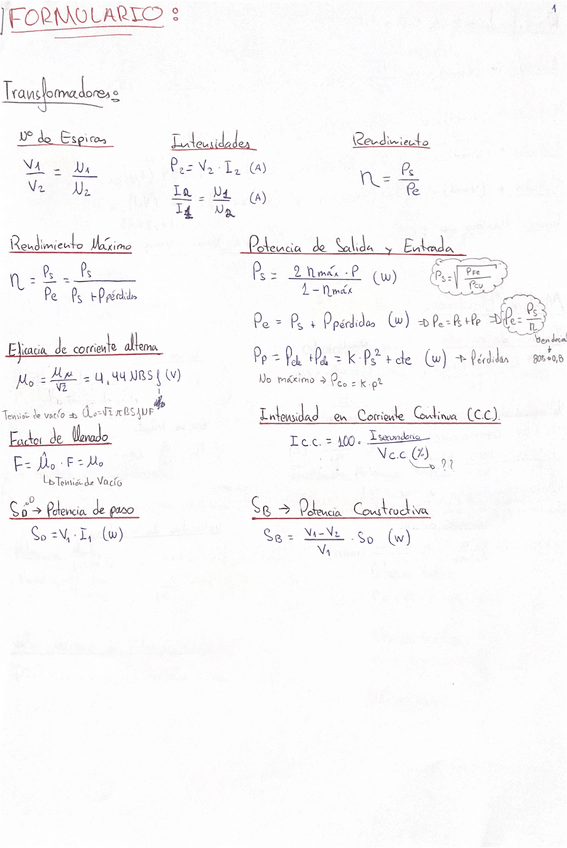 1
FORMULARIO:
Transformadores:
Nº de Espiras
V1/V2 = N1/N2
Intensidades
P2 = V2 · I2 (A)
I2/I1 = N1/N2 (A)
Rendimiento
η = Ps/Pe
Rendimiento Máximo
η = Ps/Pe = Ps/(Ps + Ppérdidas)
Potencia de Salida y Entrada
Ps = (2 η máx · P)/(1 - η máx) (W)
Ps = √(PFe/Pcu)
Pe = Ps + Ppérdidas (W) ⇒ Pe = Ps + Pp ⇒ Pe = Ps/η
80% → 0,8
Pp = Pde + Pds = K · Ps² + cte (W) → Pérdidas
No máximo → Pco = k · p²
Eficacia de corriente alterna
μo = μM/√2 = 4,44 NBSf (V)
Tensión de vacío ⇒ û0 = √2 πBSfNF
Factor de llenado
F = û0 · F = μo
↳ Tensión de Vacío
Intensidad en Corriente Continua (C.C.)
I c.c. = 100 · I secundario / V c.c. (%)
→ ??
SD → Potencia de paso
SD = V1 · I1 (W)
SB → Potencia Constructiva
SB = (V1 - V2)/V1 · SD (W)